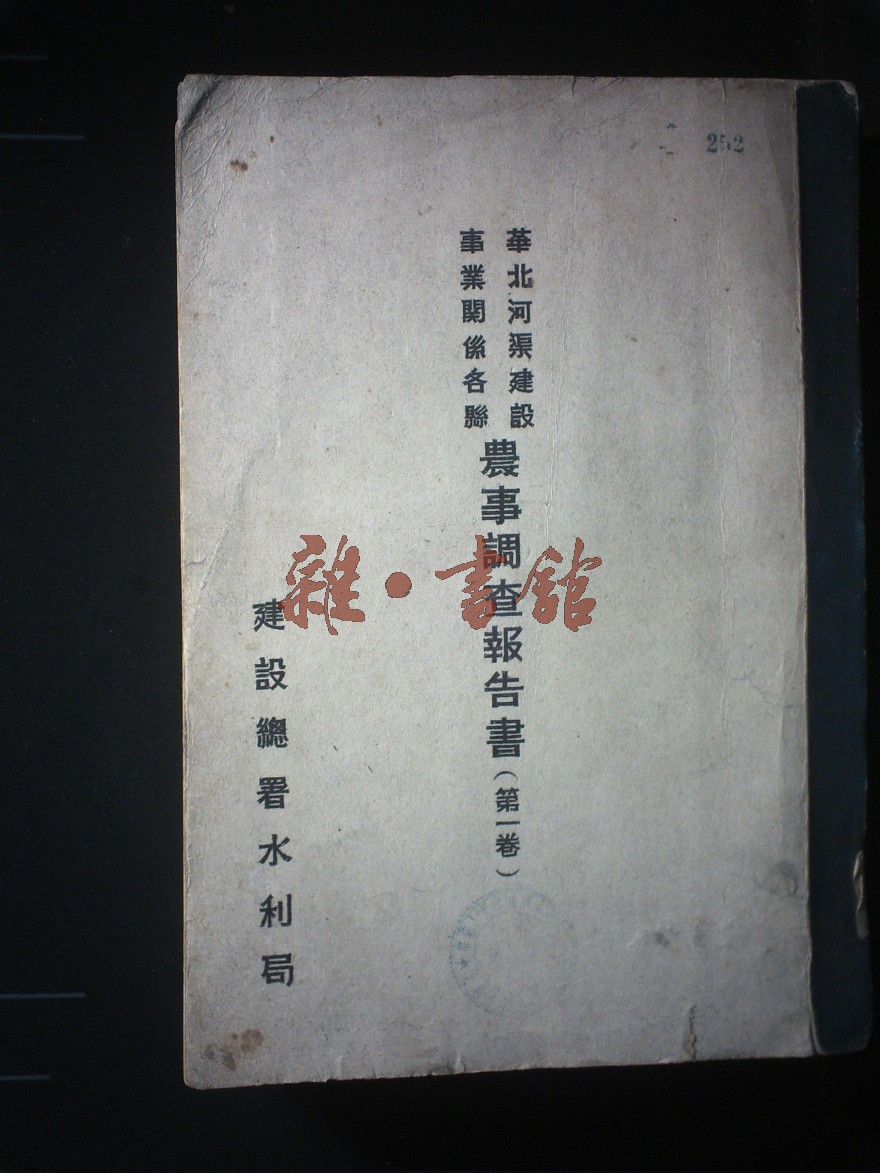 252
華北河渠建設
事業関係各縣
農事調查報告書（第一卷）
建設總署水利局
雜·書館